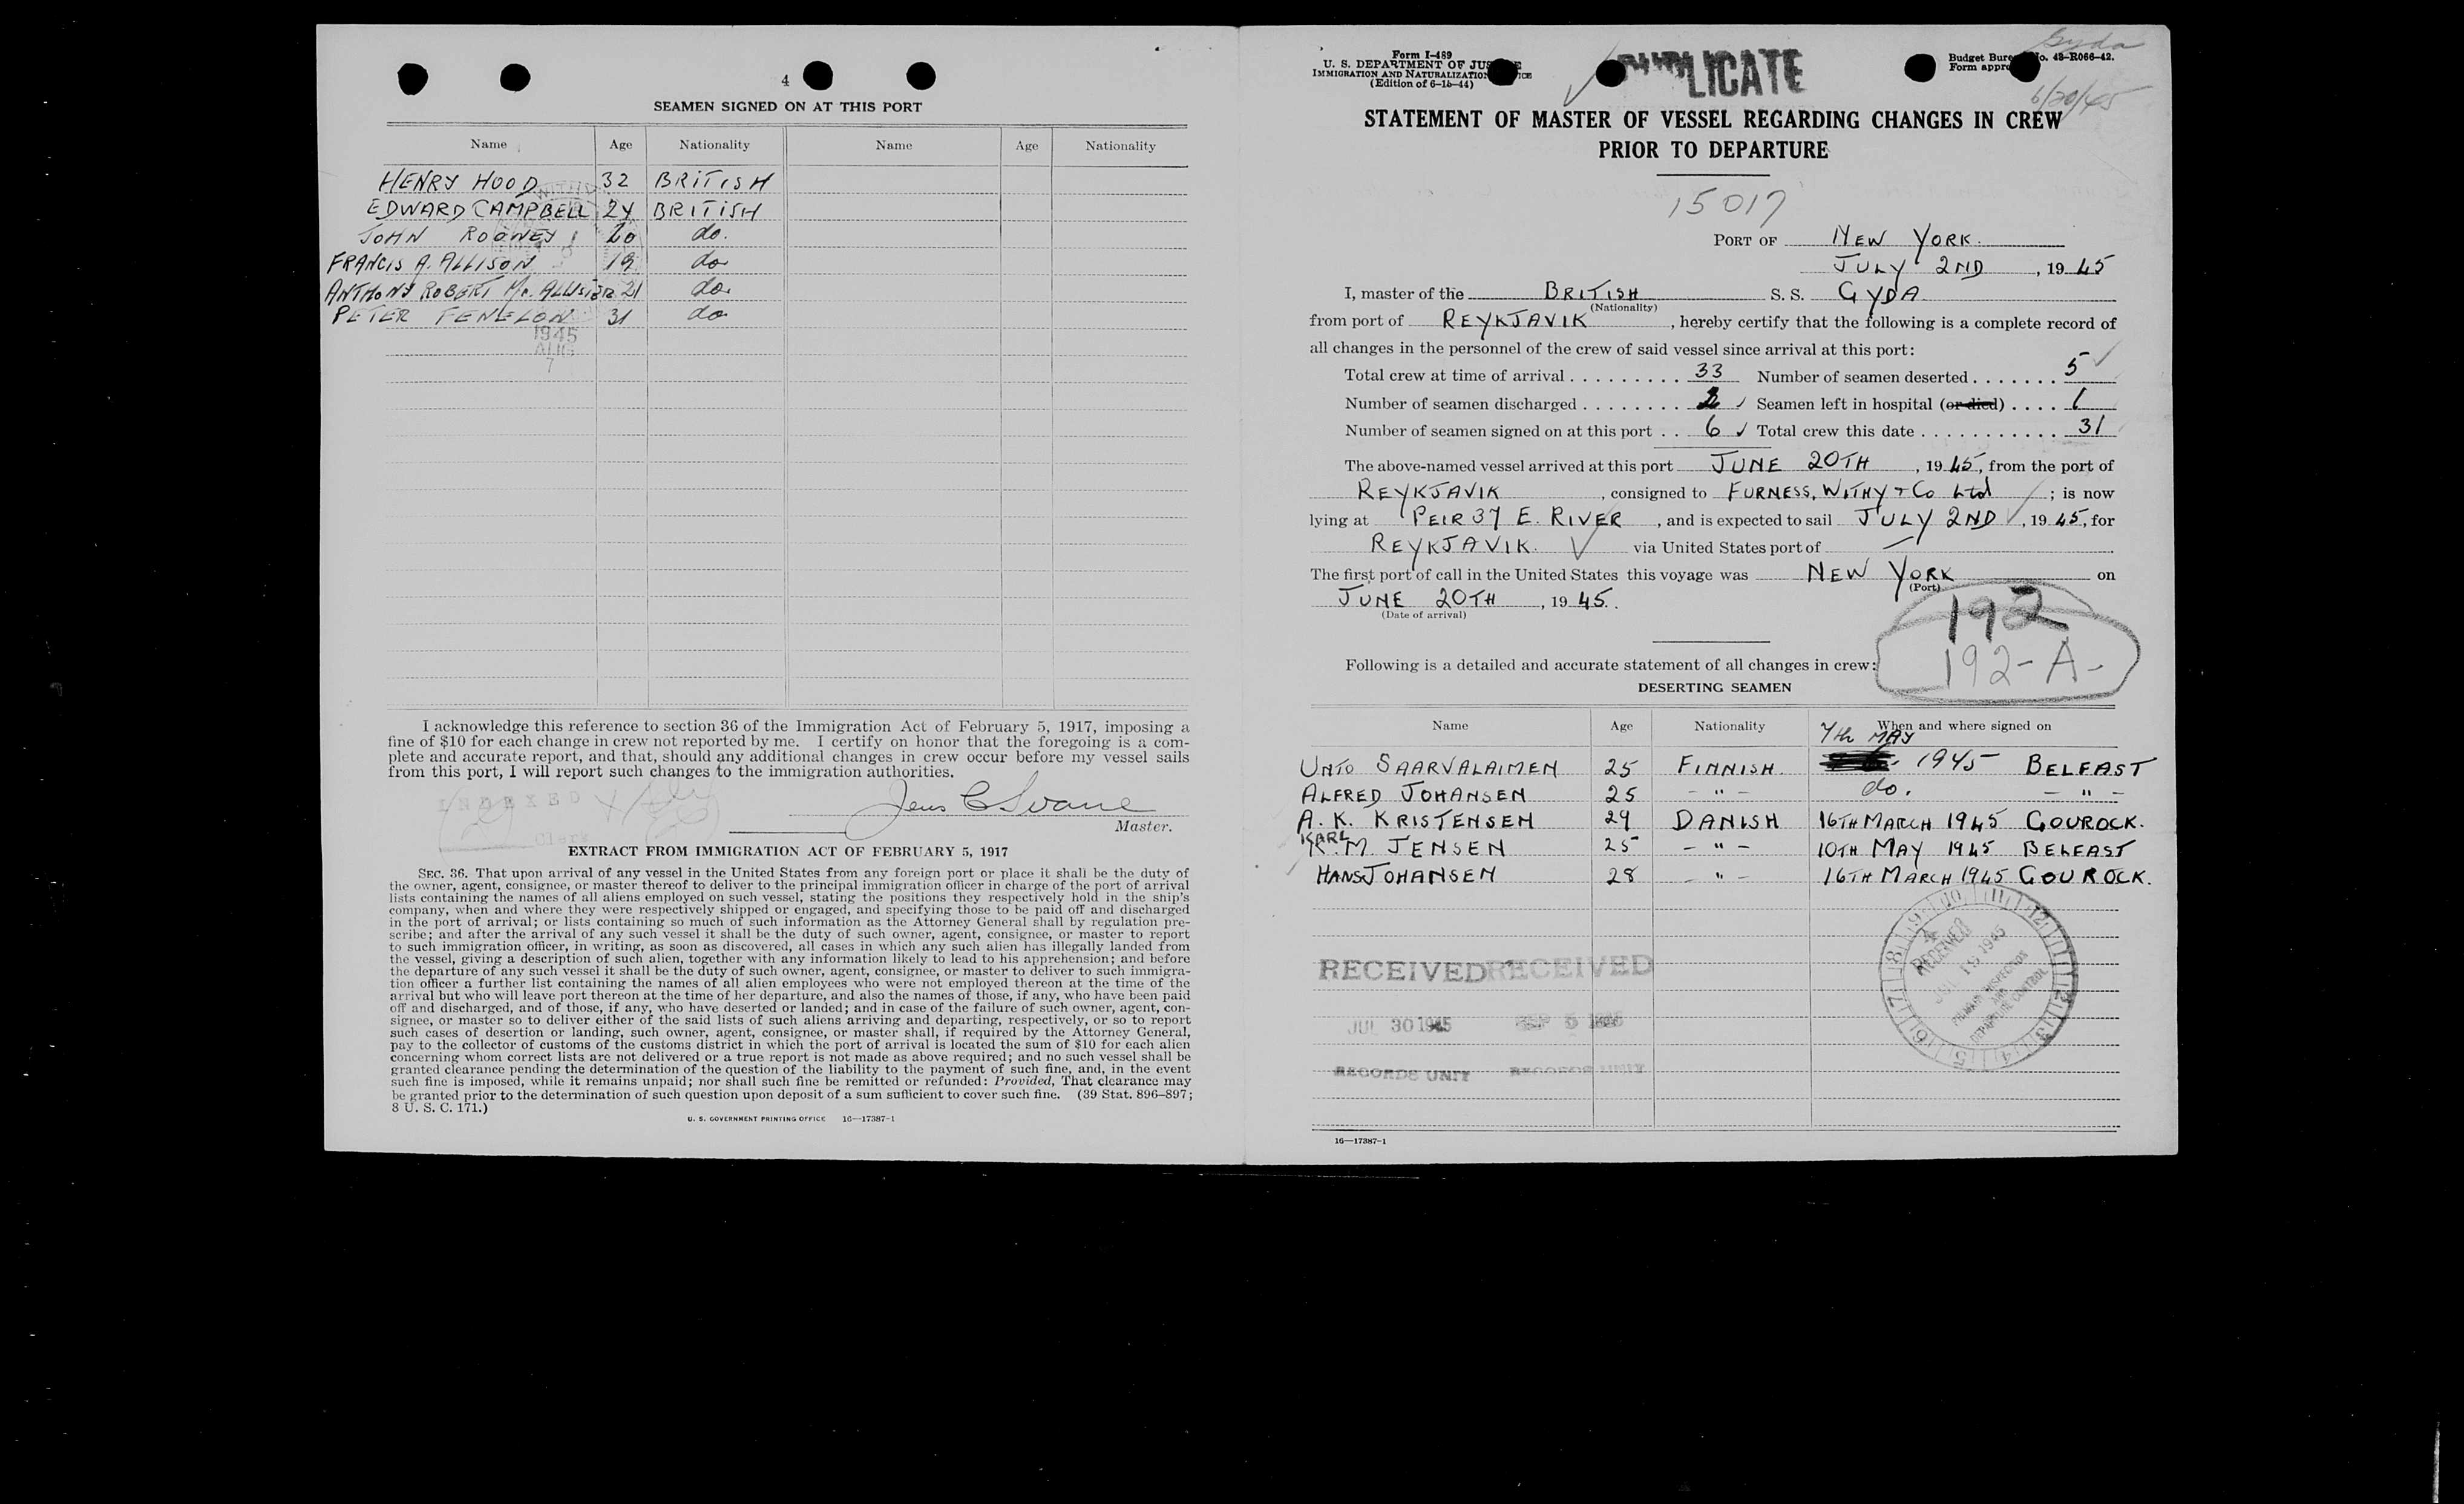 4
SEAMEN SIGNED ON AT THIS PORT
Name Age Nationality Name Age Nationality
HENRY HOOD 32 BRITISH
EDWARD CAMPBELL 24 BRITISH
JOHN ROONEY 20 do.
FRANCIS A. ALLISON 19 do
ANTHONY ROBERT Mc. ALLISTER 21 do.
PETER FENELON 31 do
1945
AUG
7
I acknowledge this reference to section 36 of the Immigration Act of February 5, 1917, imposing a
fine of $10 for each change in crew not reported by me. I certify on honor that the foregoing is a com-
plete and accurate report, and that, should any additional changes in crew occur before my vessel sails
from this port, I will report such changes to the immigration authorities.
INDEXED
Clerk
Jens C Svane
Master.
EXTRACT FROM IMMIGRATION ACT OF FEBRUARY 5, 1917
SEC. 36. That upon arrival of any vessel in the United States from any foreign port or place it shall be the duty of
the owner, agent, consignee, or master thereof to deliver to the principal immigration officer in charge of the port of arrival
lists containing the names of all aliens employed on such vessel, stating the positions they respectively hold in the ship's
company, when and where they were respectively shipped or engaged, and specifying those to be paid off and discharged
in the port of arrival; or lists containing so much of such information as the Attorney General shall by regulation pre-
scribe; and after the arrival of any such vessel it shall be the duty of such owner, agent, consignee, or master to report
to such immigration officer, in writing, as soon as discovered, all cases in which any such alien has illegally landed from
the vessel, giving a description of such alien, together with any information likely to lead to his apprehension; and before
the departure of any such vessel it shall be the duty of such owner, agent, consignee, or master to deliver to such immigra-
tion officer a further list containing the names of all alien employees who were not employed thereon at the time of the
arrival but who will leave port thereon at the time of her departure, and also the names of those, if any, who have been paid
off and discharged, and of those, if any, who have deserted or landed; and in case of the failure of such owner, agent, con-
signee, or master so to deliver either of the said lists of such aliens arriving and departing, respectively, or so to report
such cases of desertion or landing, such owner, agent, consignee, or master shall, if required by the Attorney General,
pay to the collector of customs of the customs district in which the port of arrival is located the sum of $10 for each alien
concerning whom correct lists are not delivered or a true report is not made as above required; and no such vessel shall be
granted clearance pending the determination of the question of the liability to the payment of such fine, and, in the event
such fine is imposed, while it remains unpaid; nor shall such fine be remitted or refunded: Provided, That clearance may
be granted prior to the determination of such question upon deposit of a sum sufficient to cover such fine. (39 Stat. 896–897;
8 U. S. C. 171.)
U. S. GOVERNMENT PRINTING OFFICE 16—17387-1
Form I-489
U. S. DEPARTMENT OF JUSTICE
IMMIGRATION AND NATURALIZATION SERVICE
(Edition of 6-15-44)
DUPLICATE
Gyda
Budget Bureau No. 43-R066-42.
Form appro
6/20/45
STATEMENT OF MASTER OF VESSEL REGARDING CHANGES IN CREW
PRIOR TO DEPARTURE
15017
PORT OF NEW YORK.
JULY 2ND, 1945
I, master of the BRITISH S. S. GYDA
(Nationality)
from port of REYKJAVIK, hereby certify that the following is a complete record of
all changes in the personnel of the crew of said vessel since arrival at this port:
Total crew at time of arrival . . . . . . . . . . 33 Number of seamen deserted . . . . . . . 5
Number of seamen discharged . . . . . . . . . 2 Seamen left in hospital (or died) . . . . 1
Number of seamen signed on at this port . . 6 Total crew this date . . . . . . . . . . . . 31
The above-named vessel arrived at this port JUNE 20TH, 1945, from the port of
REYKJAVIK, consigned to FURNESS, WITHY + Co Ltd; is now
lying at PEIR 37 E. RIVER, and is expected to sail JULY 2ND, 1945, for
REYKJAVIK. via United States port of —
The first port of call in the United States this voyage was NEW YORK on
(Port)
JUNE 20TH, 1945.
(Date of arrival)
192
192-A-
Following is a detailed and accurate statement of all changes in crew:
DESERTING SEAMEN
Name Age Nationality When and where signed on
7th MAY
UNTO SAARVALAIMEN 25 FINNISH. 1945 BELFAST
ALFRED JOHANSEN 25 - " - do. - " -
A. K. KRISTENSEN 29 DANISH 16TH MARCH 1945 GOUROCK.
KARL
K. M. JENSEN 25 - " - 10TH MAY 1945 BELFAST
HANS JOHANSEN 28 - " - 16TH MARCH 1945 GOUROCK.
RECEIVED RECEIVED
JUL 30 1945 SEP 5 1945
RECORDS UNIT RECORDS UNIT
RECEIVED
1945
DEPARTURE CONTROL
16—17387-1